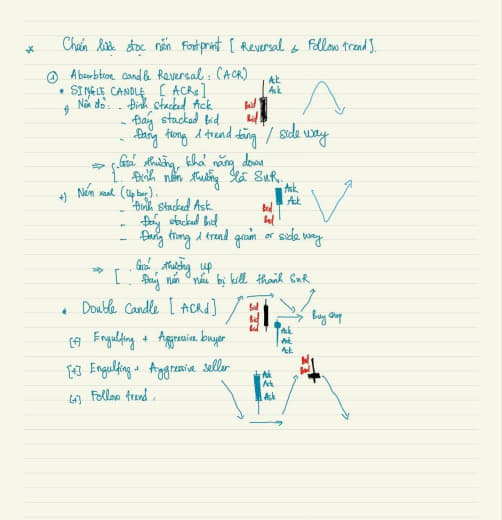 * Chiến lược đọc nến Footprint [Reversal & Follow trend].
① Absorbtion candle Reversal: (ACR)
• SINGLE CANDLE [ACRs]
+) Nến đỏ: - Đỉnh stacked Ask
- Đáy stacked bid
- Đang trong 1 trend tăng / side way
Ask
Ask
Bid
Bid
⇒ [. Giá thường, khả năng down
. Đỉnh nến thường là SnR.
+) Nến xanh (Up bar).
- Đỉnh stacked Ask
- Đáy stacked Bid
- Đang trong 1 trend giảm or side way
Ask
Ask
Bid
Bid
⇒ [. Giá thường up
. Đáy nến nếu bị kill thành SnR
• Double Candle [ACRd]
[+] Engulfing + Aggressive buyer
Bid
Bid
Bid
Buy stop
Ask
Ask
Ask
[+] Engulfing + Aggressive seller
[+] Follow trend.
Ask
Ask
Ask
Bid
Bid